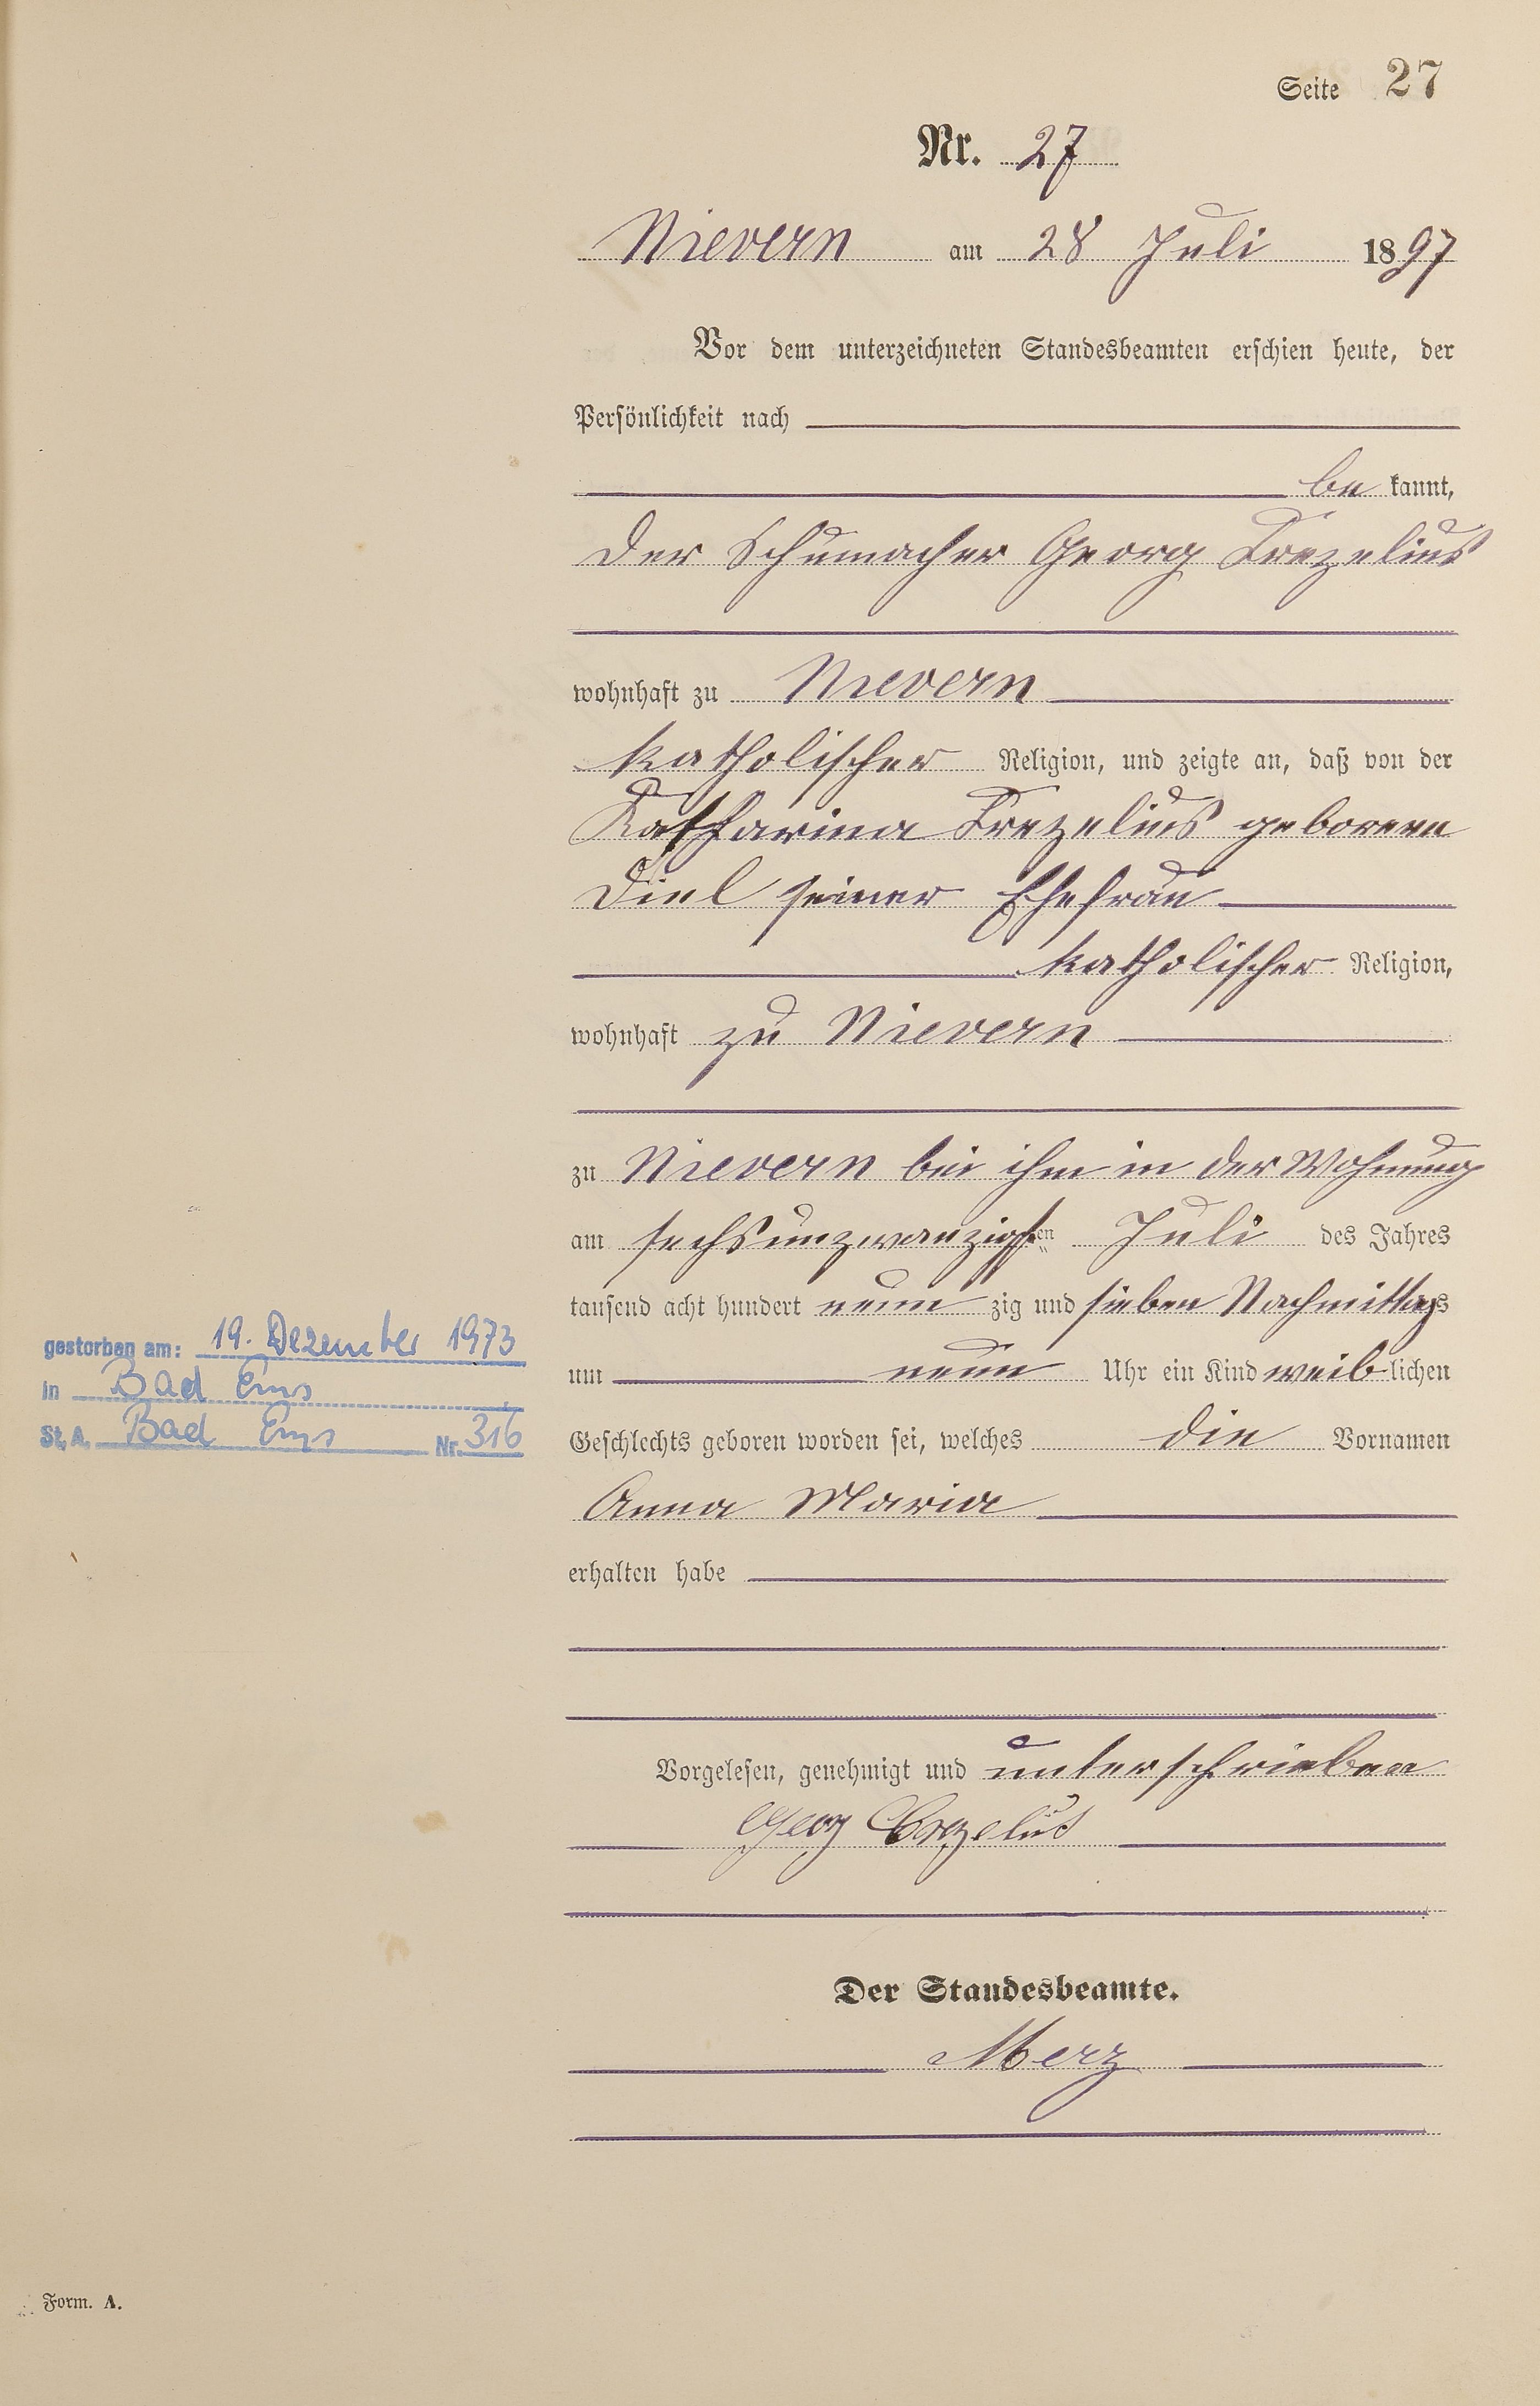 Seite 27
Nr. 27
Nievern am 28 Juli 1897
Vor dem unterzeichneten Standesbeamten erschien heute, der
Persönlichkeit nach
be kannt,
der Schumacher Georg
wohnhaft zu Nievern
katholischer Religion, und zeigte an, daß von der
Katharina geborene
Diel seiner Ehefrau
katholischer Religion,
wohnhaft zu Nievern
zu Nievern bei ihm in der Wohnung
am sechsunzwanzigsten Juli des Jahres
tausend acht hundert neun zig und sieben Nachmittags
um neun Uhr ein Kind weiblichen
Geschlechts geboren worden sei, welches die Vornamen
Anna Maria
erhalten habe
gestorben am: 19. Dezember 1973
in Bad Ems
St. A. Bad Ems Nr. 316
Vorgelesen, genehmigt und unterschrieben
Georg
Der Standesbeamte.
Merz
Form. A.